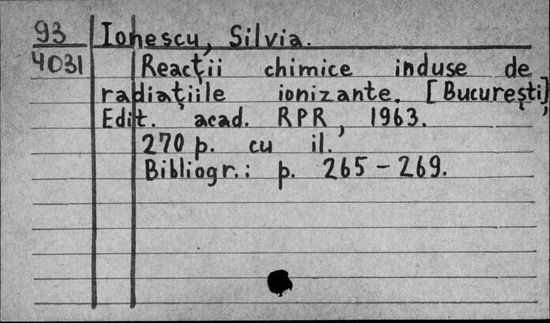 93 Ionescu, Silvia.
4031 Reacţii chimice induse de
radiaţiile ionizante. [Bucureşti],
Edit. acad. RPR, 1963.
270 p. cu il.
Bibliogr.: p. 265-269.